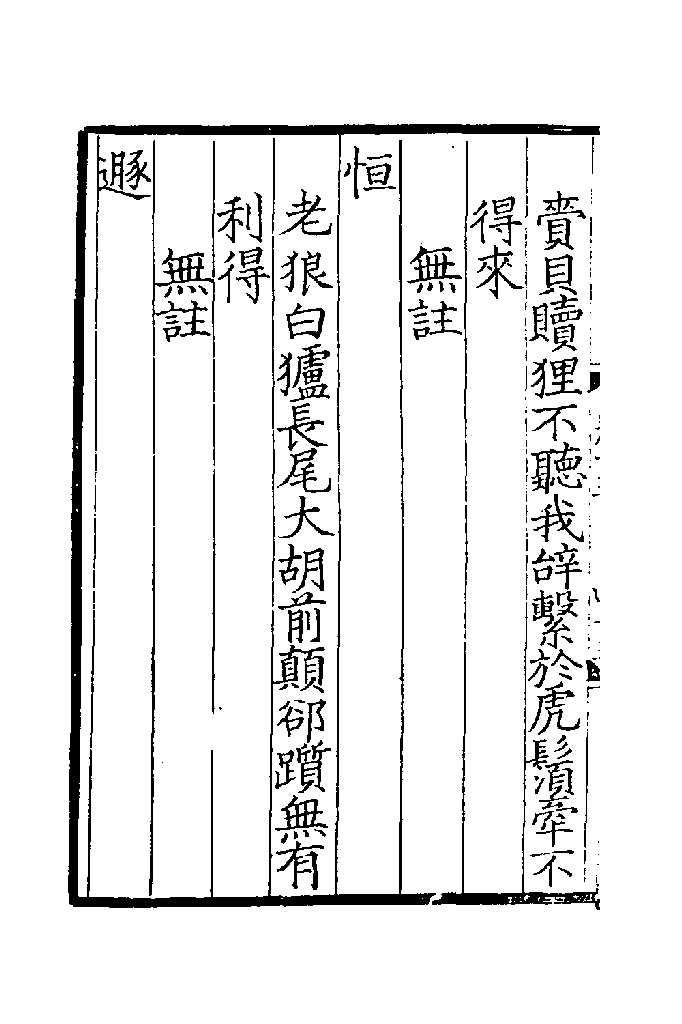 賫貝贖狸不聽我辤繫於虎鬚牽不
得來
無註
恒
老狼白獹長尾大胡前顛郤躓無有
利得
無註
遯